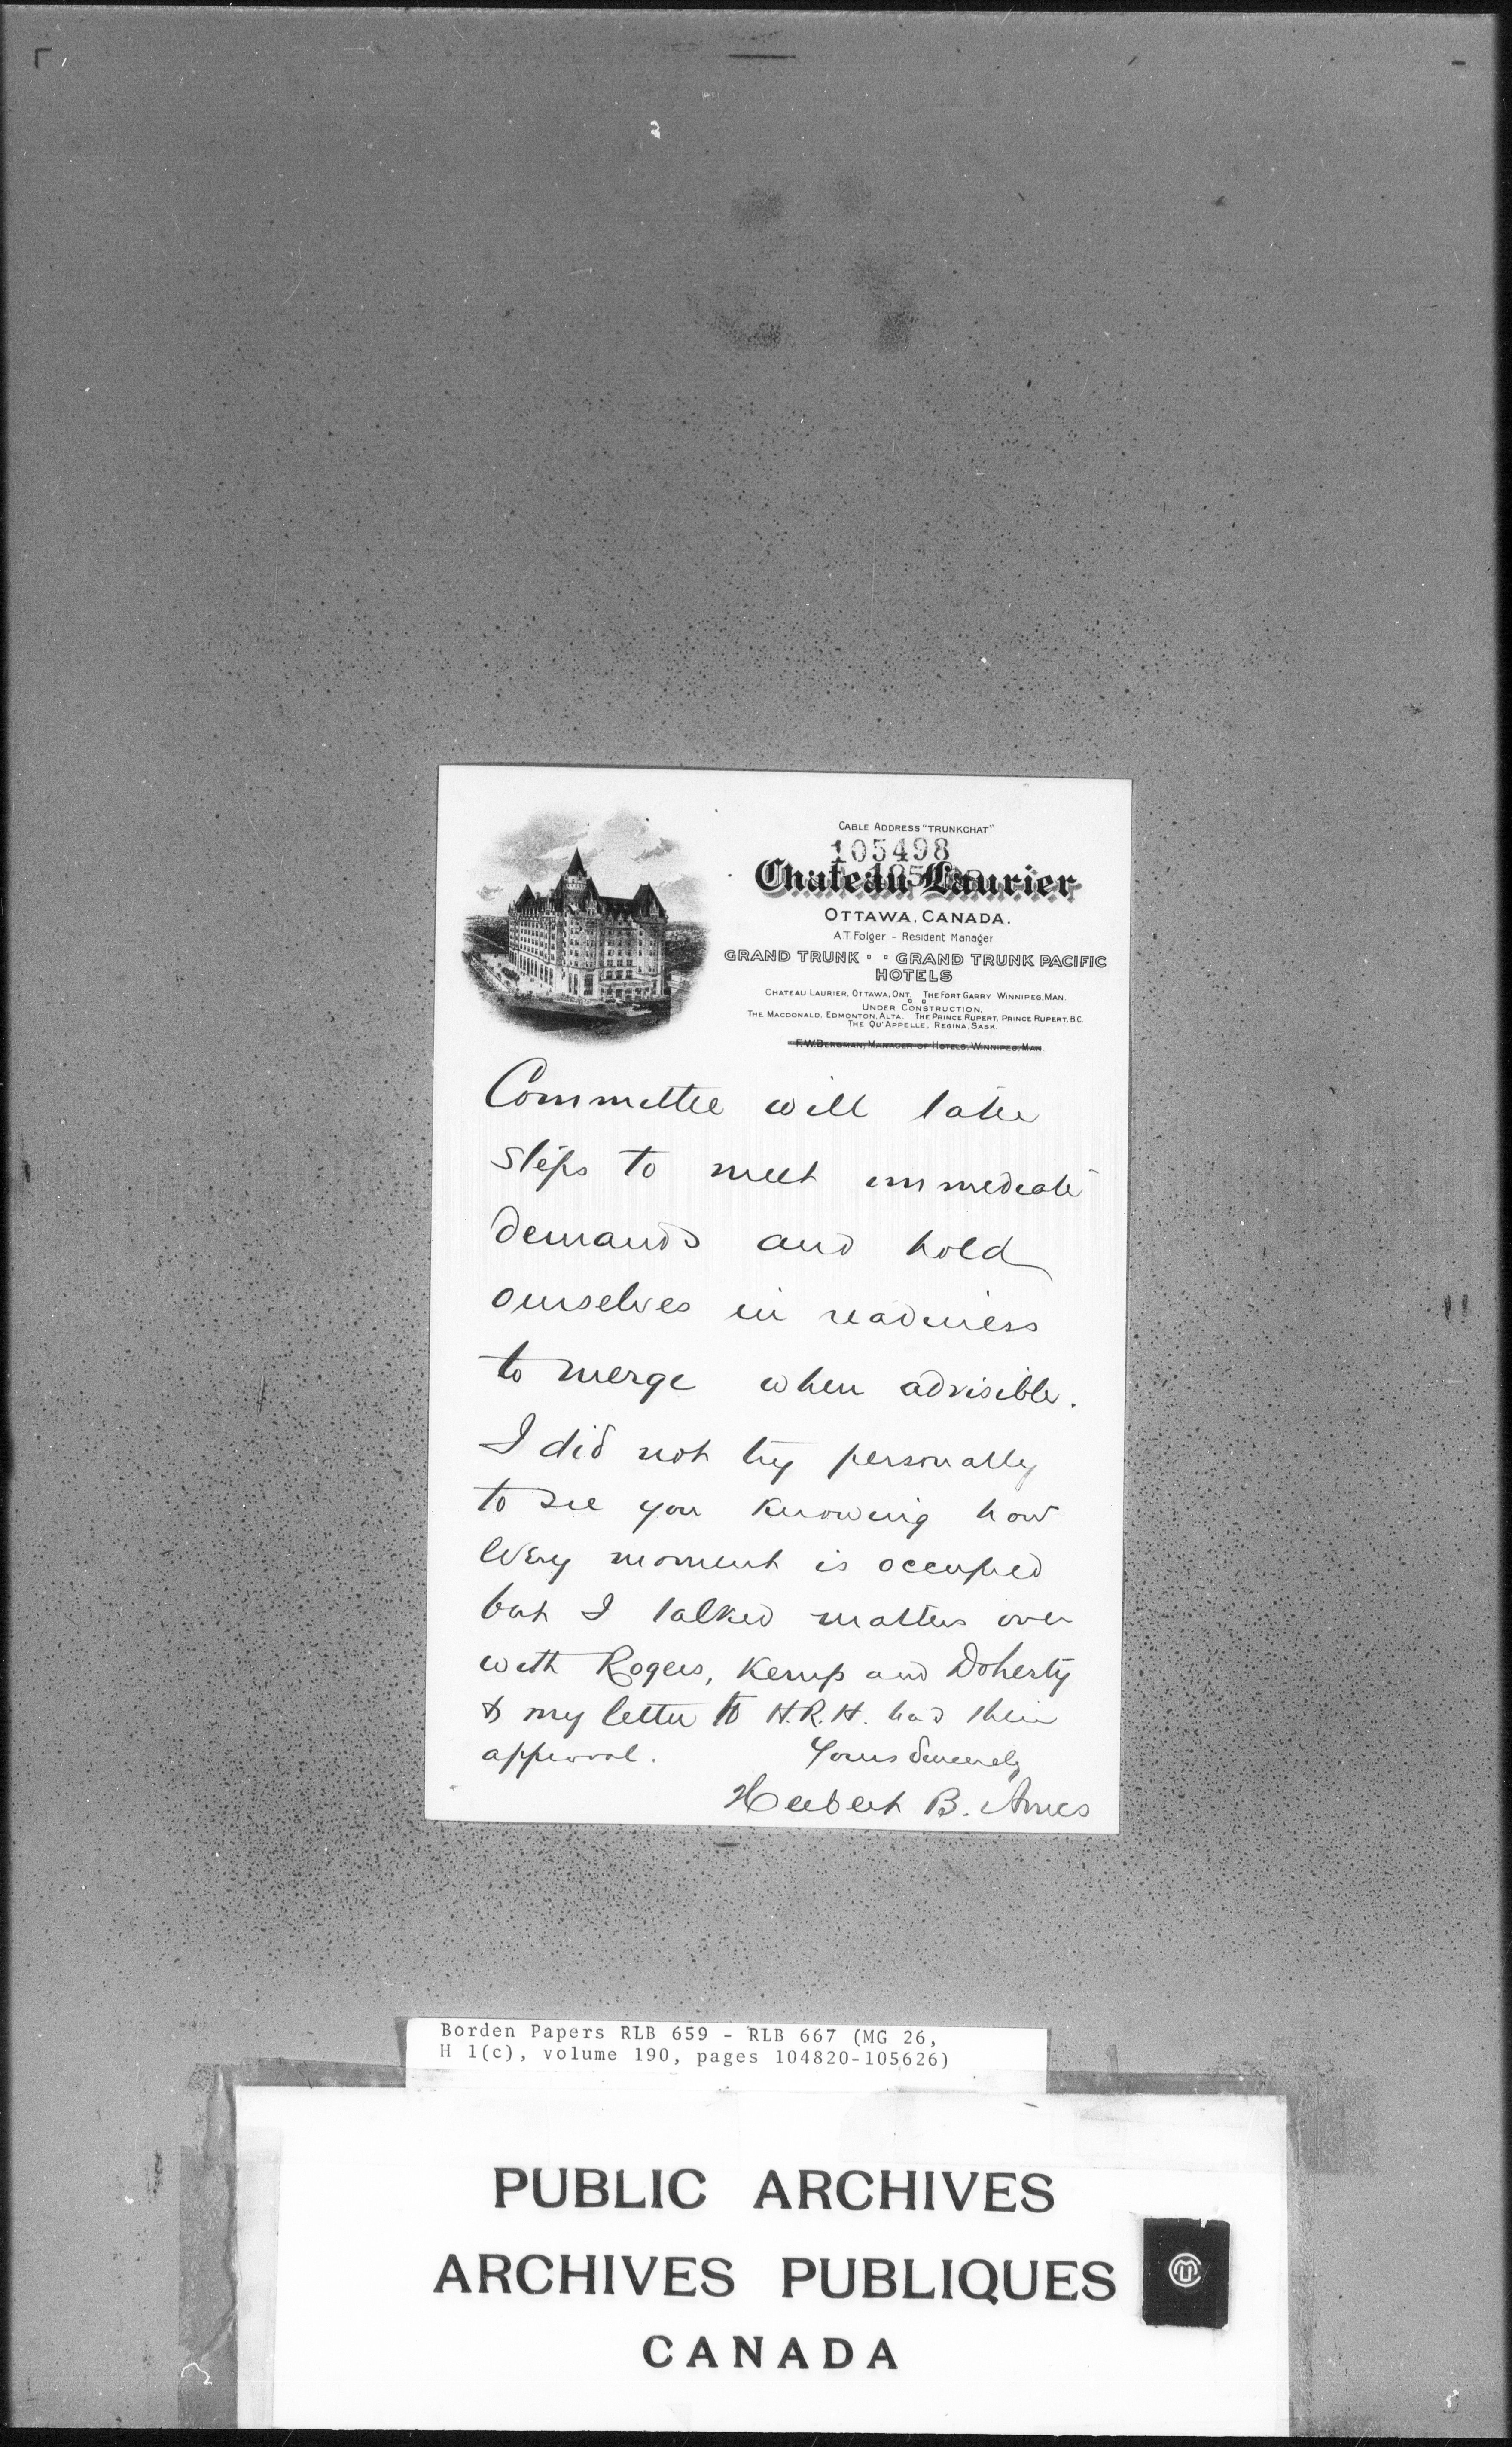 CABLE ADDRESS "TRUNKCHAT"
105498
Chateau Laurier
OTTAWA, CANADA.
A.T. Folger - Resident Manager
GRAND TRUNK · · GRAND TRUNK PACIFIC
HOTELS
CHATEAU LAURIER, OTTAWA, ONT. THE FORT GARRY WINNIPEG, MAN.
UNDER CONSTRUCTION,
THE MACDONALD, EDMONTON, ALTA. THE PRINCE RUPERT, PRINCE RUPERT, B.C.
THE QU'APPELLE, REGINA, SASK.
F.W. BERGMAN, MANAGER OF HOTELS, WINNIPEG, MAN
Committee will take
steps to meet immediate
demands and hold
ourselves in readiness
to merge when advisible.
I did not try personally
to see you knowing how
every moment is occupied
but I talked matters over
with Rogers, Kemp and Doherty
& my letter to H.R.H. had their
approval. Yours Sincerely
Herbert B. Ames
Borden Papers RLB 659 - RLB 667 (MG 26,
H 1(c), volume 190, pages 104820-105626)
PUBLIC ARCHIVES
ARCHIVES PUBLIQUES
CANADA